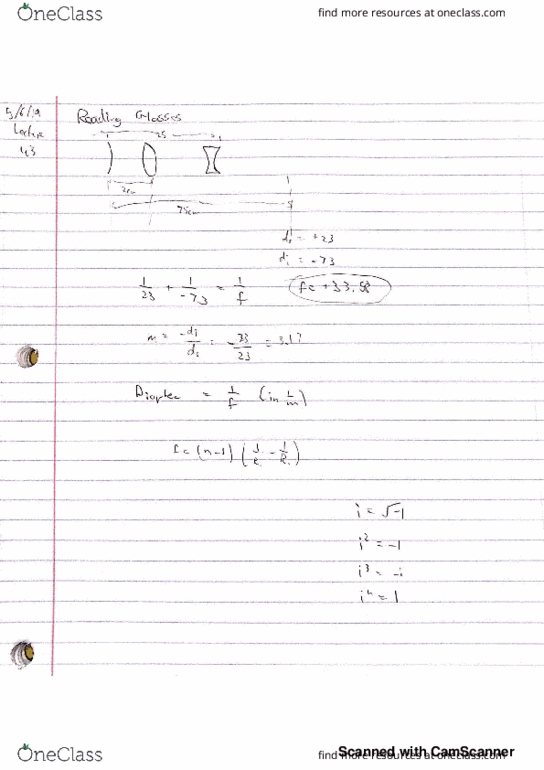 OneClass
find more resources at oneclass.com
5/6/19
Lecture
43
Reading Glasses
25
2cm
75cm
do = +23
di = -73
1/23 + 1/-73 = 1/f
f = +33.58
m = -di/do = - -73/23 = 3.17
Diopter = 1/f (in 1/m)
f = (n-1) (1/R - 1/R)
i = √-1
i² = -1
i³ = -i
i⁴ = 1
OneClass
find more resources at oneclass.com
Scanned with CamScanner